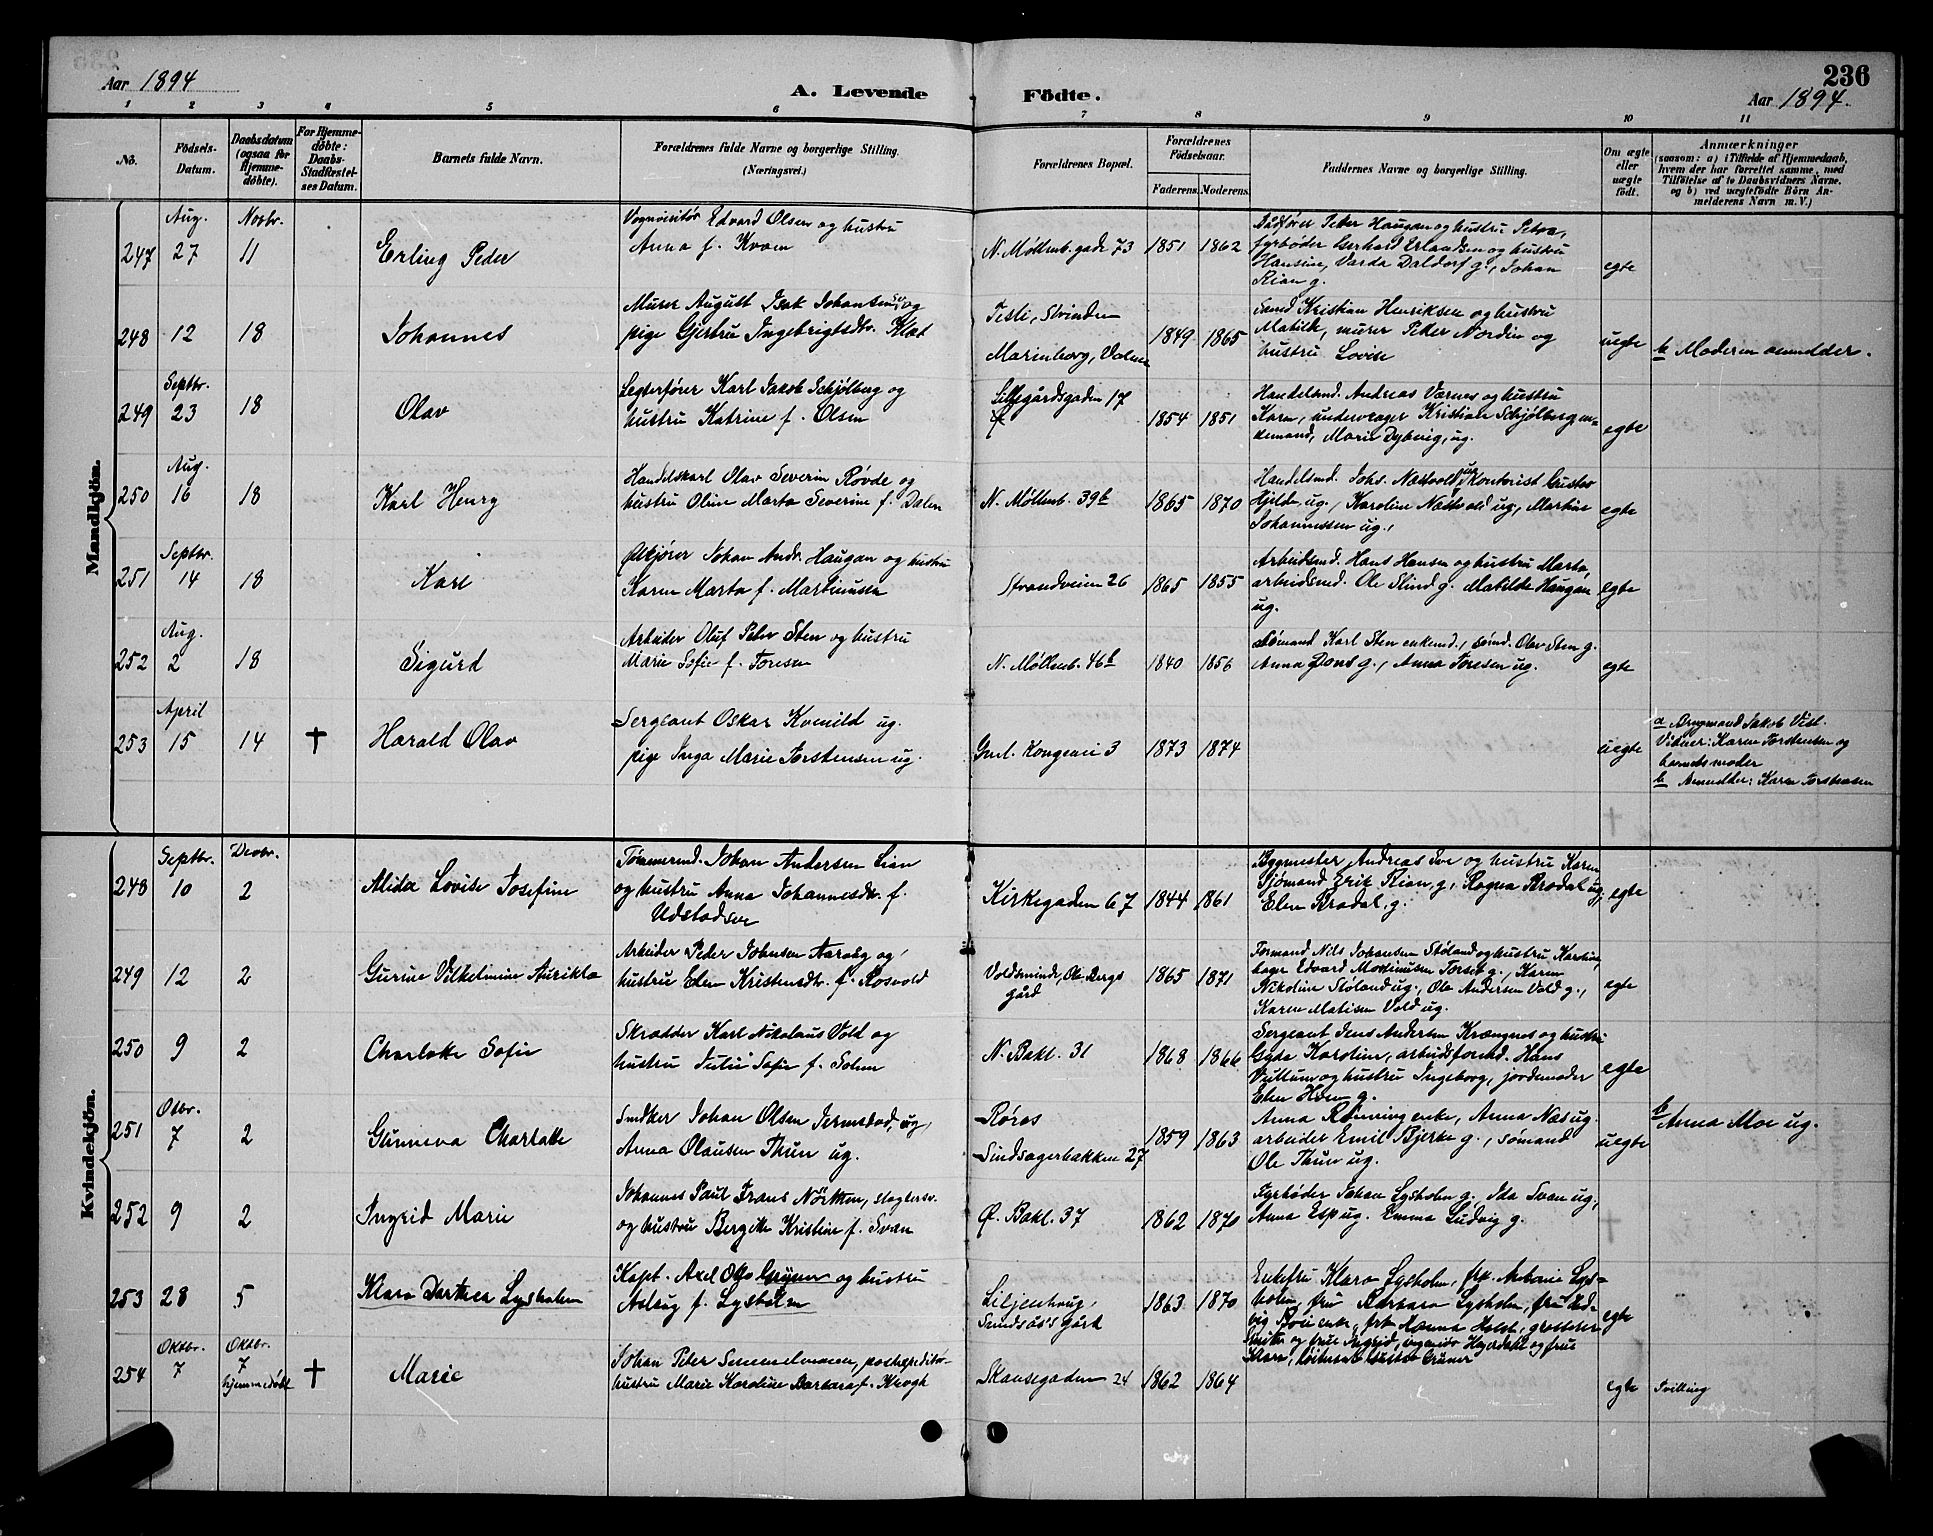 236
Aar 1894
A. Levende Födte.
Aar 1894.
1 2 3 4 5 6 7 8 9 10 11
No.
Födsels-Datum.
Daabsdatum (ogsaa for Hjemme-döbte).
For Hjemme-döbte: Daabs-Stadfæstel-ses Datum.
Barnets fulde Navn.
Forældrenes fulde Navne og borgerlige Stilling.
(Næringsvei.)
Forældrenes Bopæl.
Forældrenes Födselsaar.
Faderens. Moderens.
Faddernes Navne og borgerlige Stilling.
Om ægte eller uægte födt.
Anmærkninger
(saasom: a) i Tilfælde af Hjemmedaab,
hvem der har forrettet samme, med
Tilföielse af to Daabsvidners Navne,
og b) ved uægtefödte Börn An-
melderens Navn m. V.)
Mandkjön.
Aug. Novbr.
247 27 11 Erling Peder
Vognvisitør Edvard Olsen og hustru
Anna f. Kvam
N. Møllenb. gade 73 1851 1862
Peter Haugan og hustru Petra,
fyrbøder Gerhard Erlandsen og hustru
Hansine, Varda Daldorf g., Johan
Rian g.
egte
248 12 18 Johannes
Murer August Isak Johansen, og
pige Gjertru Ingebrigtsdtr. Klæt
Testi, Strinden
Marienborg,
1849 1865
Smed Kristian Henriksen og hustru
Matilde, murer Peter Nordin og
hustru Lovise
uegte
b Moderen anmelder.
Septbr.
249 23 18 Olav
Legterfører Karl Jakob Schjølberg og
hustru Katrine f. Olsen
Lillegårdsgaden 17
1854 1851
Handelsmd. Andreas Værnes og hustru
Karen, Kristian Schjølberg, en-
kemand, Marie Dybvig, ug.
egte
Aug.
250 16 18 Karl Henry
Handelskarl Olav Severin Røvde og
hustru Oline Marta Severine f. Dalen
N. Møllenb. 39b 1865 1870
Handelsmd. Johs. Næsvold ug, Kontorist Gustav
Hjelde, ug., Karoline Næsvold ug., Martine
Johannessen ug.,
egte
Septbr.
251 14 18 Karl
Ølkjører Johan Andr. Haugan og hustru
Karen Marta f. Martinusen
Strandveien 26 1865 1855
Arbeidsmd. Hans Hansen og hustru Marta,
arbeidsmd. Ole Slind g. Matilde Haugan
ug.
egte
Aug.
252 2 18 Sigurd
Arbeider Oluf Peter Sten og hustru
Marie Sofie f. Toresen
N. Møllenb. 46b 1840 1856
Sømand Karl Sten enkemd., sømd. Olav Sten g.
Anna Dons g., Anna Toresen ug.
egte
April
253 15 14 † Harald Olav
Sergeant Oskar Kvenild ug.
pige Inga Marie Torstensen ug.
Gml. Kongevei 3 1873 1874
uegte
a Brygmand Jakob Vist.
Vidner: Karen Torstensen og
barnets moder
b Anmelder: Karen Torstensen
Kvindekjön.
Septbr. Decbr.
248 10 2 Alida Lovise Josefine
Tømmermd. Johan Andersen Lian
og hustru Anna Johannesdtr. f.
Udstadsen
Kirkegaden 67 1844 1861
Bygmester Andreas Sve og hustru Karen
Sjømand Erik Rian, g., Ragna Brodal ug,
Elen Brodal, g.
egte
249 12 2 Gurine Vilhelmine
Arbeider Peder Johnsen Aarsby og
hustru Elen Kristensdtr. f. Rosvold
Voldsminde, Ole Bergs
gård
1865 1871
Formand Nils Johansen Støland og hustru Karoline,
Edvard Martinusen Torset g., Karen
Nikoline Støland ug., Ole Andersen Vold g.,
Karen Matisen Vold ug.
egte
250 9 2 Charlotte Sofie
Skrædder Karl Nikolaus Vold og
hustru Sofie f. Solem
N. Bakl. 31 1868 1866
Sergeant Jens Andersen Krængnes og hustru
Gyda Karoline, arbeidsformd. Hans
Vullum og hustru Ingeborg, jordemoder
Elen Hoem g.
egte
Otbr.
251 7 2 Gunneva Charlotte
Snedker Johan Olsen Jermstad, ug,
Anna Olausen Thun ug.
Røros
Sindsagerbakken 27
1859 1863
Anna Rønning enke, Anna Næs ug.
arbeider Emil Bjerke g., sømand
Ole Thun ug.
uegte
b Anna Moe ug.
252 9 2 Ingrid Marie
Johannes Paul Frans Nörthen, slagtersv.
og hustru Bergitte Kristine f. Svan
Ø. Bakl. 37 1862 1870
Fyrbøder Johan Lysholm g., Ida Svan ug,
Anna Esp ug. Emma Ludvig g.
253 28 5 Klara Dorthea Lysholm
Kapt. Axel Otto Grüner og hustru
Aslaug f. Lysholm
Liljenhaug,
Sundsås's gård
1863 1870
Enkefru Klara Lysholm, frk. Antonie Lys=
holm, fru Barbara Lysholm, fru Hed-
vig enke, frk Hanna Holst, grosserer
og frue Ingrid, ingeniør Hyerdahl og frue
Klara, løitnant Gustav Grüner
egte
Oktbr. Oktbr.
254 7 7
hjemmedøbt † Marie
Johan Peter Semmelmann, postexpeditør
hustru Marie Karoline Barbara f. Krogh
Skansegaden 24 1862 1864
egte Tvilling